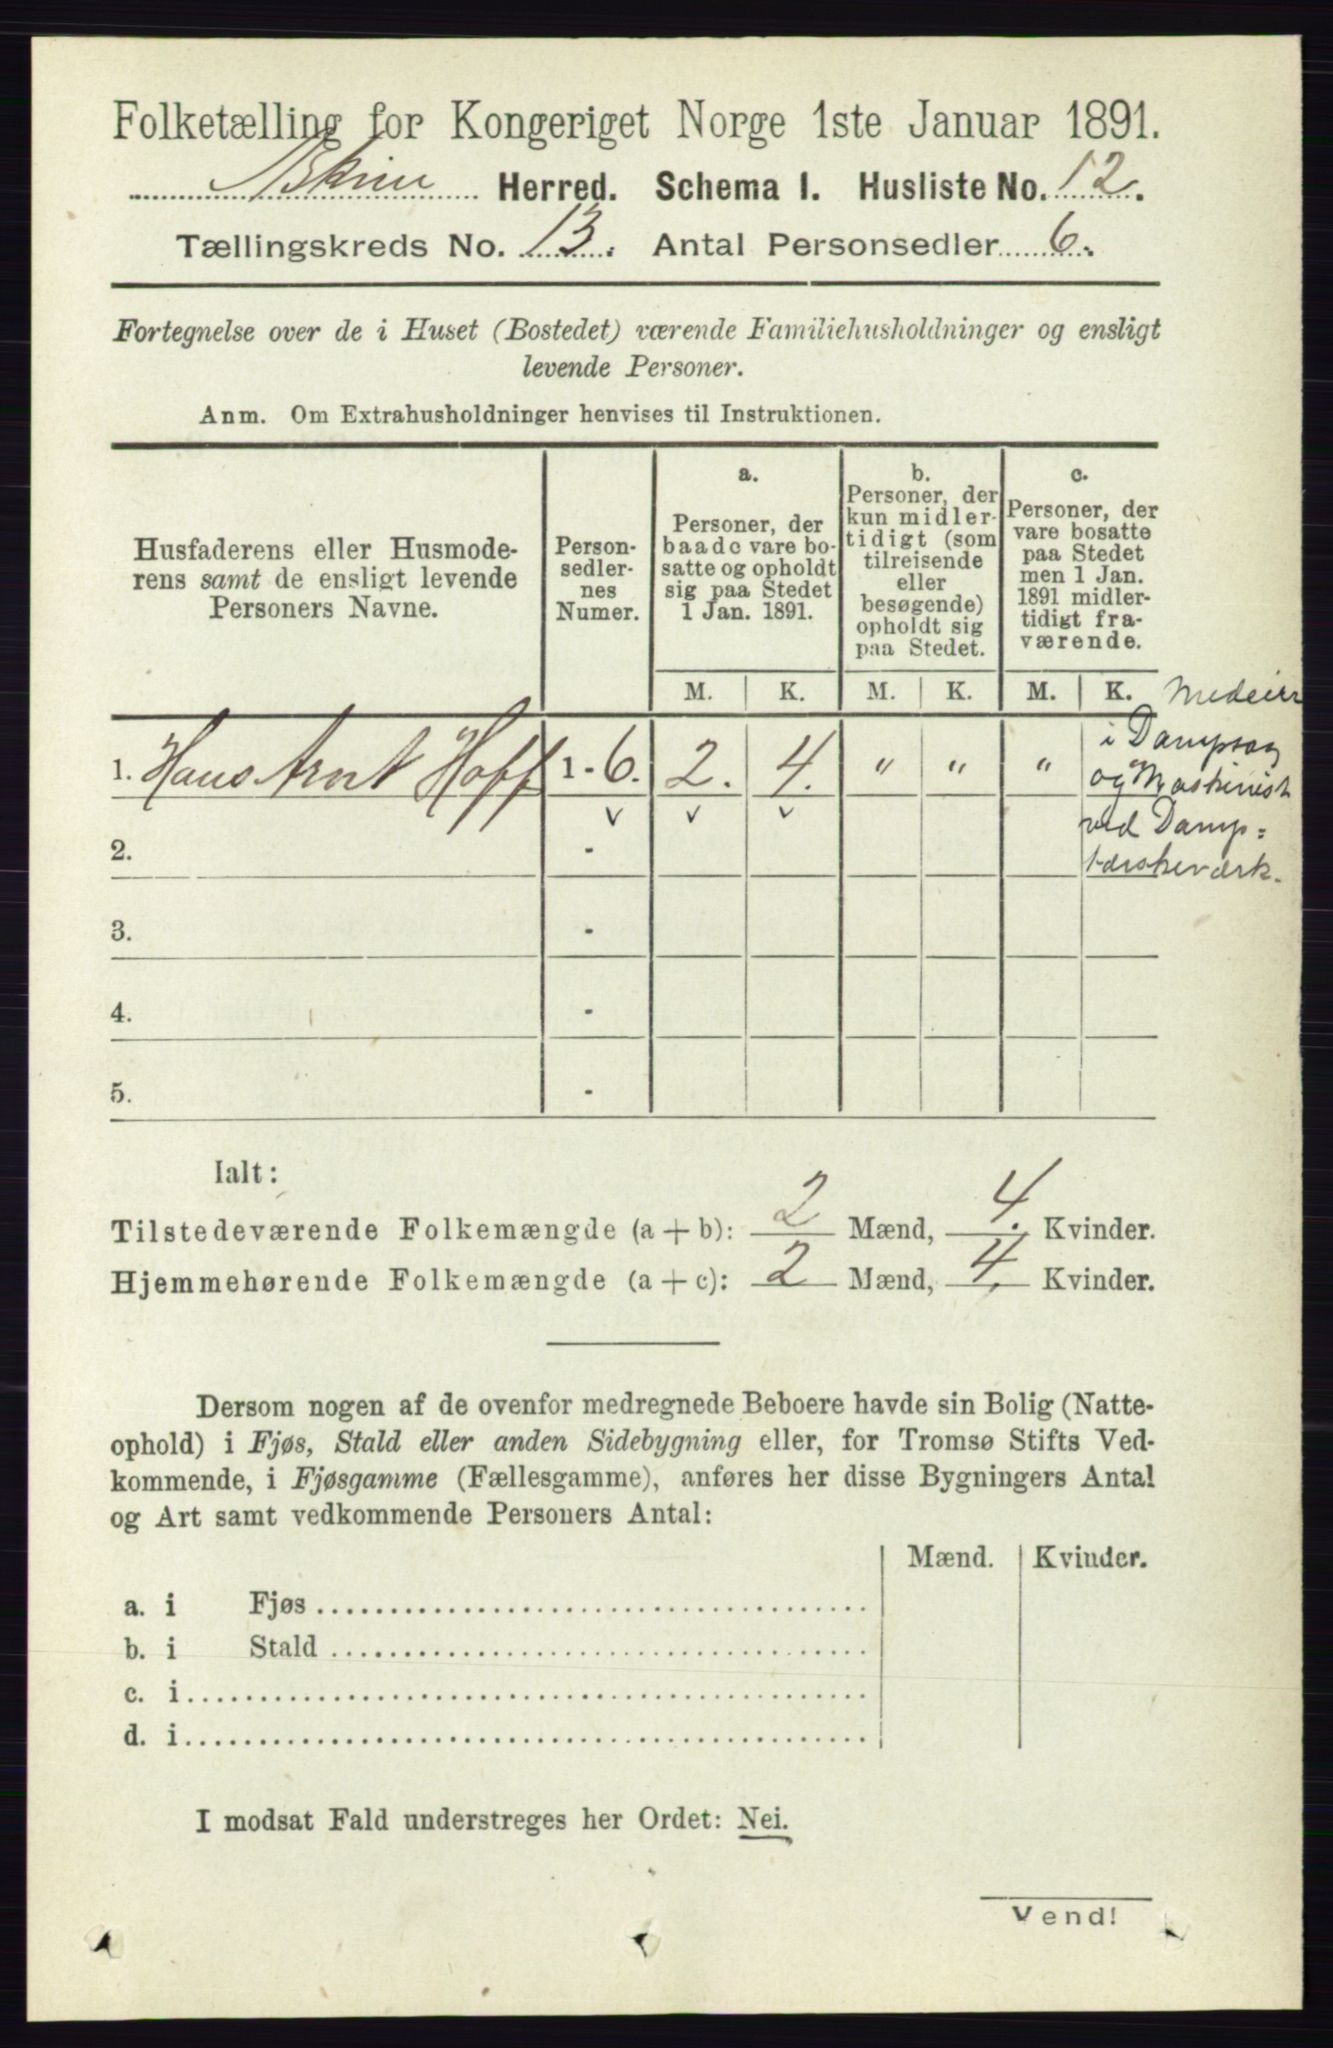 Folketælling for Kongeriget Norge 1ste Januar 1891.
Askim Herred. Schema 1. Husliste No. 12.
Tællingskreds No. 13. Antal Personsedler 6.
Fortegnelse over de i Huset (Bostedet) værende Familiehusholdninger og ensligt
levende Personer.
Anm. Om Extrahusholdninger henvises til Instruktionen.
Husfaderens eller Husmode-
rens samt de ensligt levende
Personers Navne.
Person-
sedler-
nes
Numer.
a.
Personer, der
baade vare bo-
satte og opholdt
sig paa Stedet
1 Jan. 1891.
b.
Personer, der
kun midler-
tidigt (som
tilreisende
eller
besøgende)
opholdt sig
paa Stedet.
c.
Personer, der
vare bosatte
paa Stedet
men 1 Jan.
1891 midler-
tidigt fra-
værende.
M. K. M. K. M. K.
Medeier
i Dampsag
og Maskinist
ved Damp=
tærskeværk.
1. Hans Arnt Hoff 1 - 6. 2. 4. " " "
v v v
2. -
3. -
4. -
5. -
Ialt:
Tilstedeværende Folkemængde (a + b): 2 Mænd, 4. Kvinder.
Hjemmehørende Folkemængde (a + c): 2 Mænd, 4. Kvinder.
Dersom nogen af de ovenfor medregnede Beboere havde sin Bolig (Natte-
ophold) i Fjøs, Stald eller anden Sidebygning eller, for Tromsø Stifts Ved-
kommende, i Fjøsgamme (Fællesgamme), anføres her disse Bygningers Antal
og Art samt vedkommende Personers Antal:
Mænd. Kvinder.
a. i Fjøs
b. i Stald
c. i
d. i
I modsat Fald understreges her Ordet: Nei.
Vend!